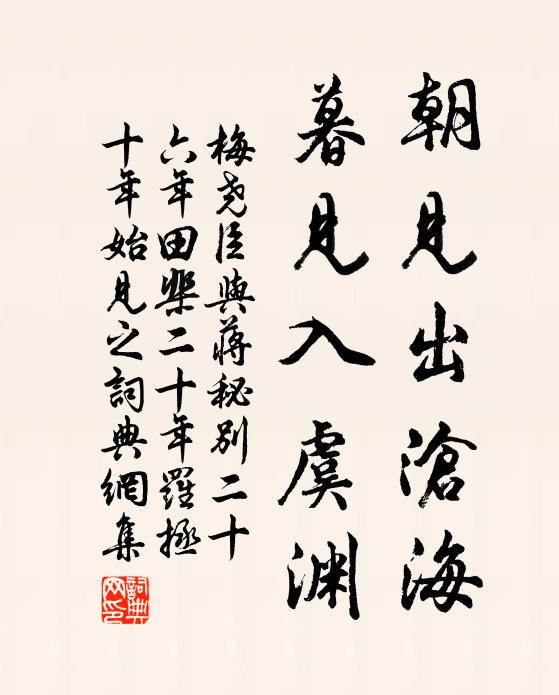 朝見出滄海
暮見入虞淵
梅堯臣與蔣秘別二十
六年田棐二十年羅拯
十年始見之詞典網集
詞典网印